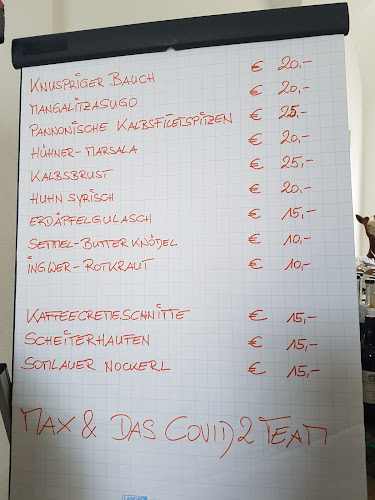 KNUSPRIGER BAUCH € 20,-
MANGALITZASUGO € 20,-
PANNONISCHE KALBSFILETSPITZEN € 25,-
HÜHNER-MARSALA € 20,-
KALBSBRUST € 25,-
HUHN SYRISCH € 20,-
ERDÄPFELGULASCH € 15,-
SEMMEL-BUTTER KNÖDEL € 10,-
INGWER-ROTKRAUT € 10,-
KAFFEECREMESCHNITTE € 15,-
SCHEITERHAUFEN € 15,-
SOMLAUER NOCKERL € 15,-
MAX & DAS COVID 2 TEAM